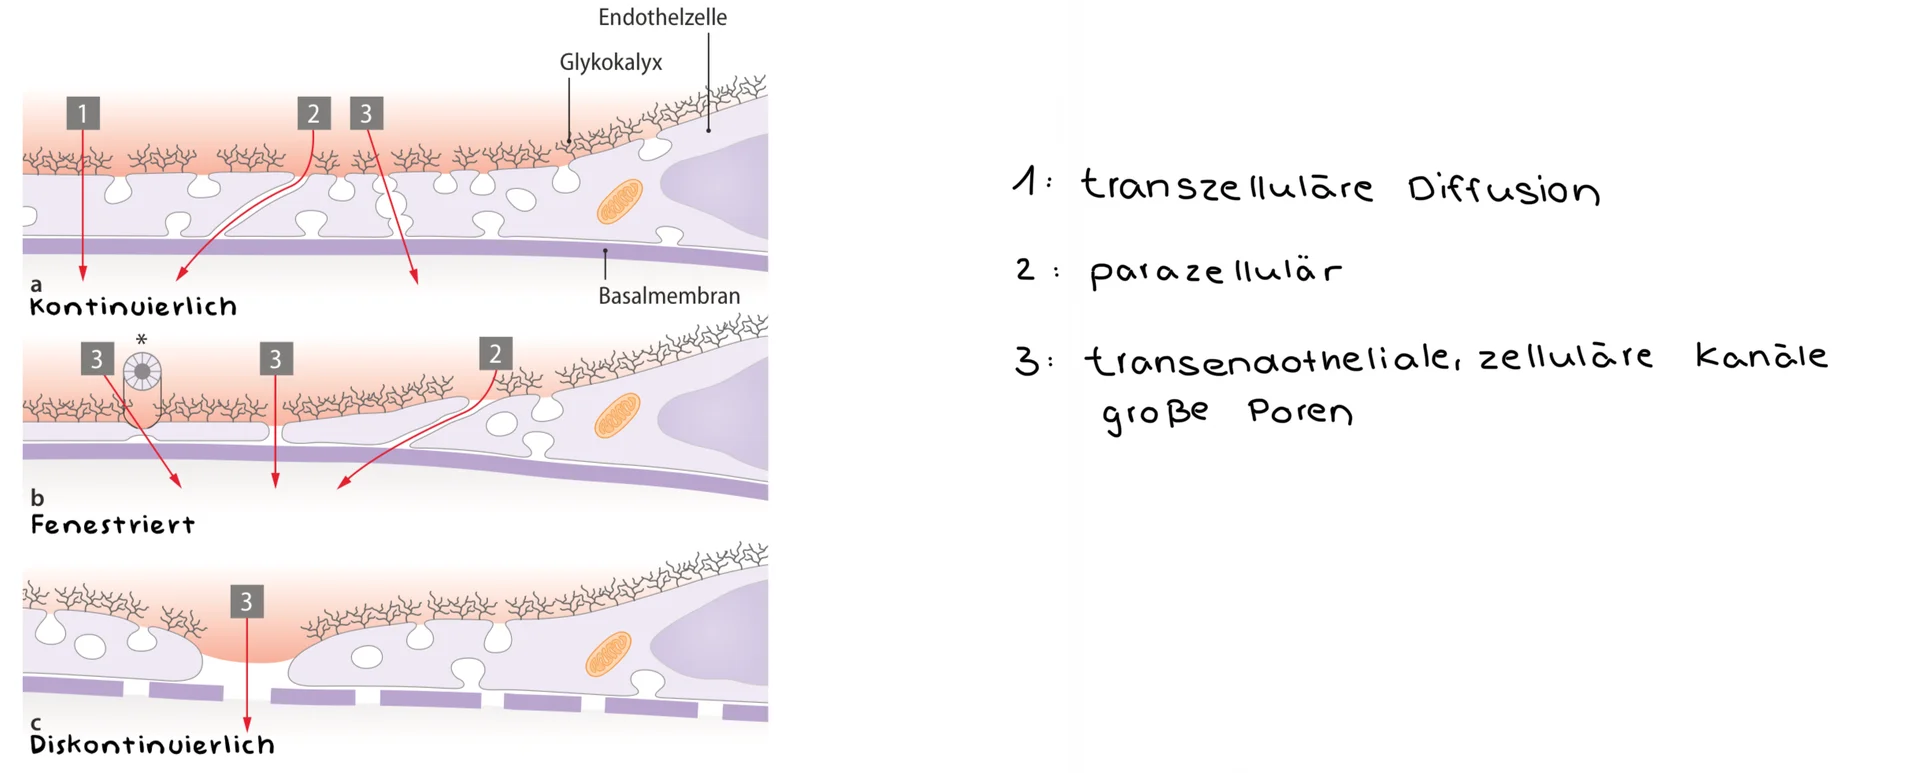 Endothelzelle
Glykokalyx
1
2
3
a
Kontinuierlich
Basalmembran
*
3
3
2
b
Fenestriert
3
c
Diskontinuierlich
1: transzelluläre Diffusion
2: parazellulär
3: transendotheliale, zelluläre Kanäle
große Poren